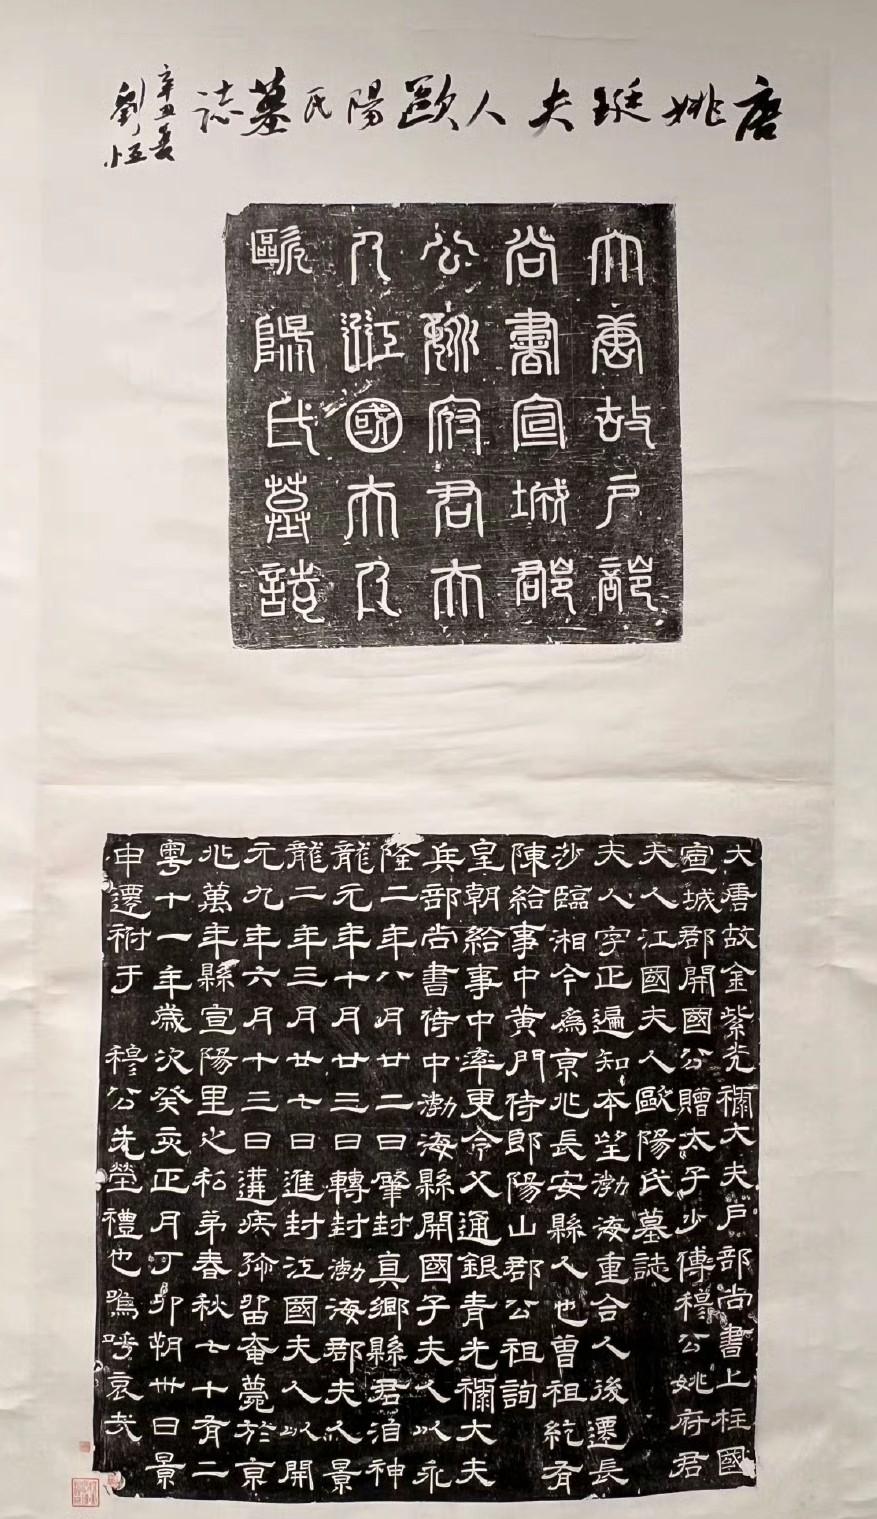 唐姚珽夫人歐陽氏墓誌
辛丑夏
劉恒
大唐故戶部
尚書宣城郡
公姚府君夫
人江國夫人
歐陽氏墓誌
大唐故金紫光祿大夫戶部尚書上柱國
宣城郡開國公贈太子少傅穆公姚府君
夫人江國夫人歐陽氏墓誌
夫人字正遍知本望渤海重合人後遷長
沙臨湘今為京兆長安縣人也曾祖紇有
陳給事中黃門侍郎陽山郡公祖詢
皇朝給事中率更令父通銀青光祿大夫
兵部尚書侍中渤海縣開國子夫人以永
隆二年八月廿二日肇封真鄉縣君洎神
龍元年十月廿三日轉封渤海郡夫人景
龍二年三月廿七日進封江國夫人以開
元九年六月十三日遘疾殄留奄薨於京
兆萬年縣宣陽里之私第春秋七十有二
粵十一年歲次癸亥正月丁卯朔卅日景
申遷祔于 穆公先塋禮也嗚呼哀哉